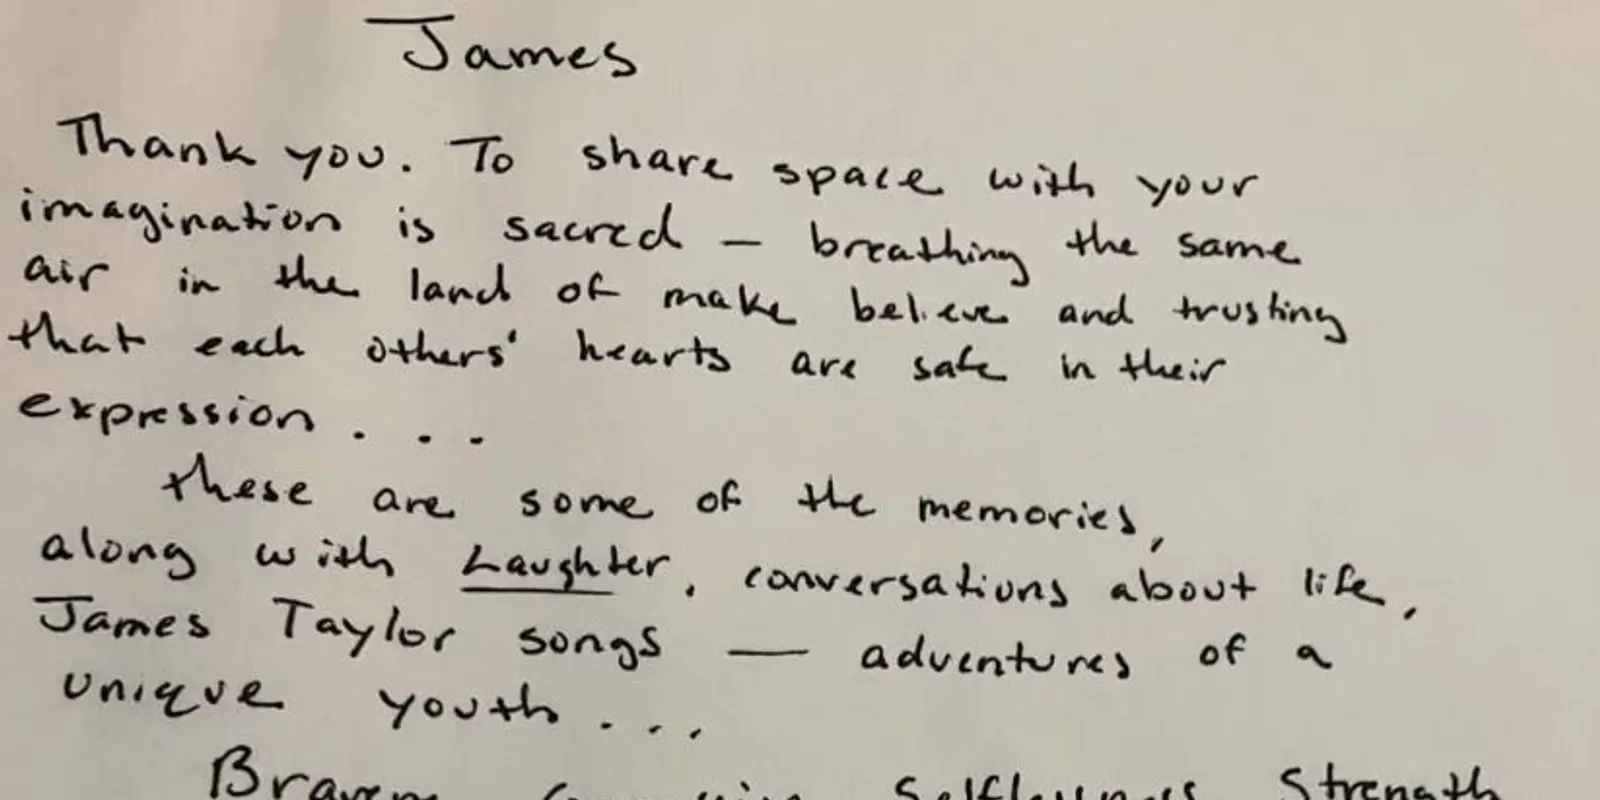 James
Thank you. To share space with your
imagination is sacred — breathing the same
air in the land of make believe and trusting
that each others' hearts are safe in their
expression . . .
these are some of the memories,
along with Laughter, conversations about life,
James Taylor songs — adventures of a
unique youth . . .
Selflessness Strength